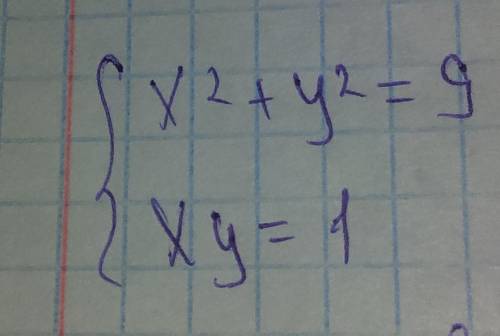 x² + y² = 9
xy = 1